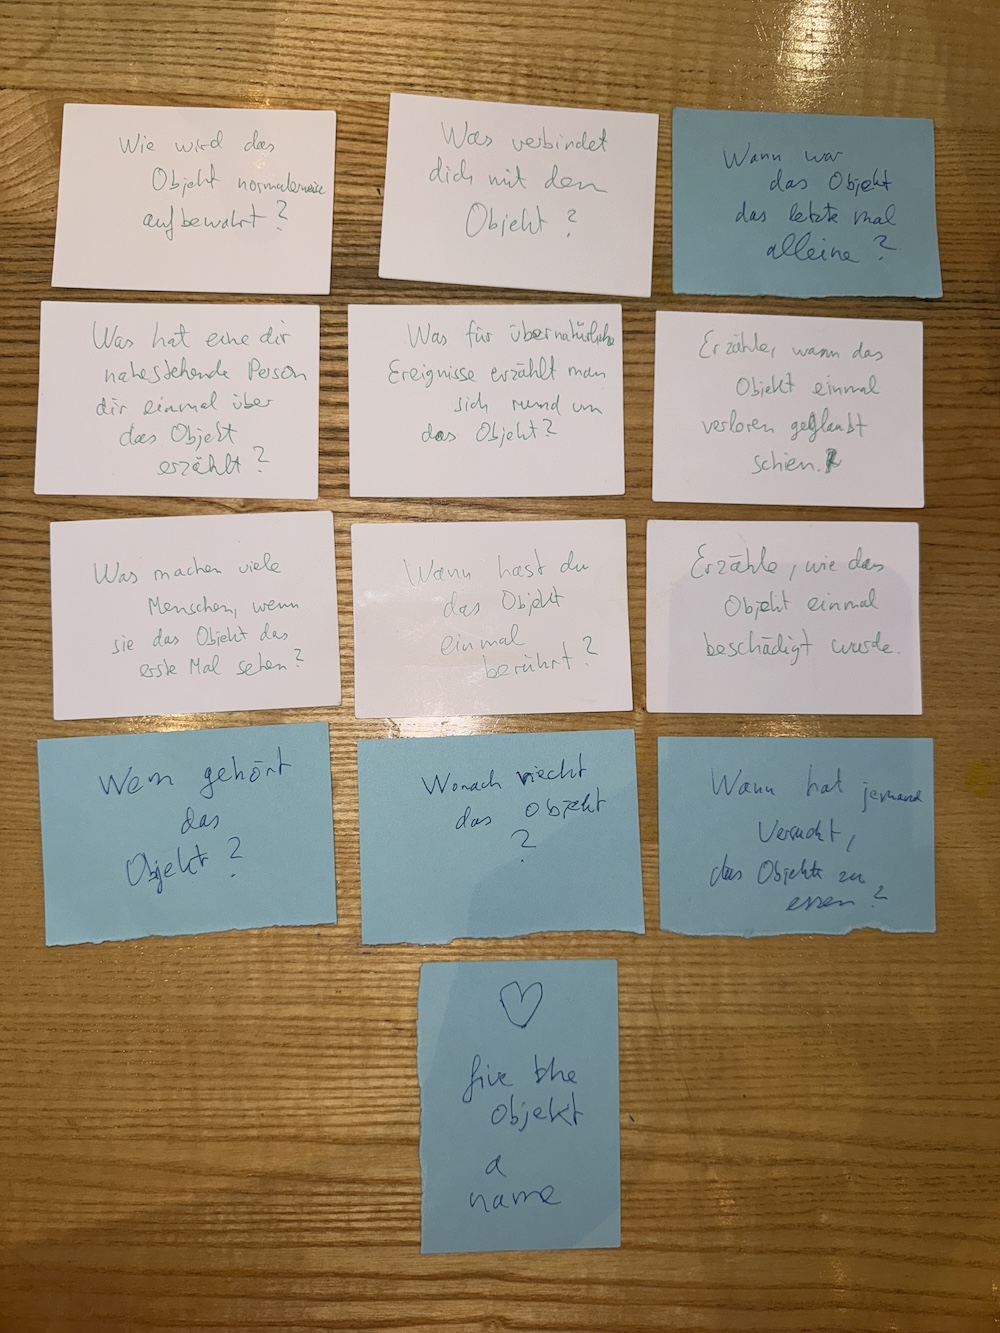 Wie wird das
Objekt normalerweise
aufbewahrt?
Was verbindet
dich mit dem
Objekt?
Wann war
das Objekt
das letzte mal
alleine?
Was hat eine dir
nahestehende Person
dir einmal über
das Objekt
erzählt?
Was für übernatürliche
Ereignisse erzählt man
sich rund um
das Objekt?
Erzähle, wann das
Objekt einmal
verloren geglaubt
schien.
Was machen viele
Menschen, wenn
sie das Objekt das
erste Mal sehen?
Wann hast du
das Objekt
einmal
berührt?
Erzähle, wie das
Objekt einmal
beschädigt wurde.
Wem gehört
das
Objekt?
Wonach riecht
das Objekt
?
Wann hat jemand
versucht,
das Objekt zu
essen?
give the
objekt
a
name